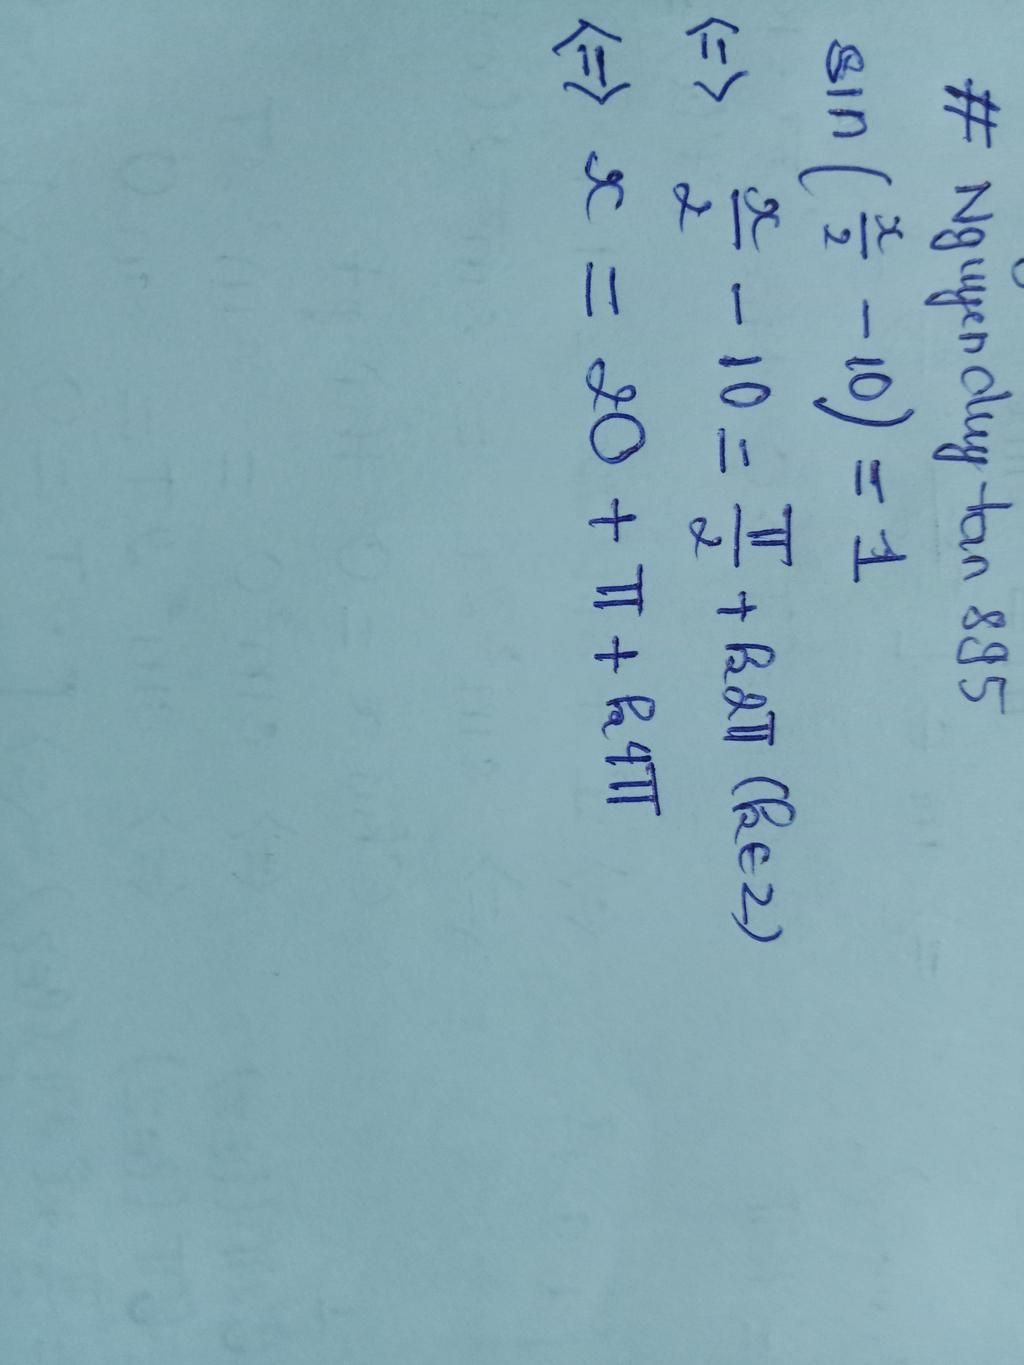 # Nguyenduytan 895
sin(x/2 - 10) = 1
<=> x/2 - 10 = π/2 + k2π (k∈Z)
<=> x = 20 + π + k4π